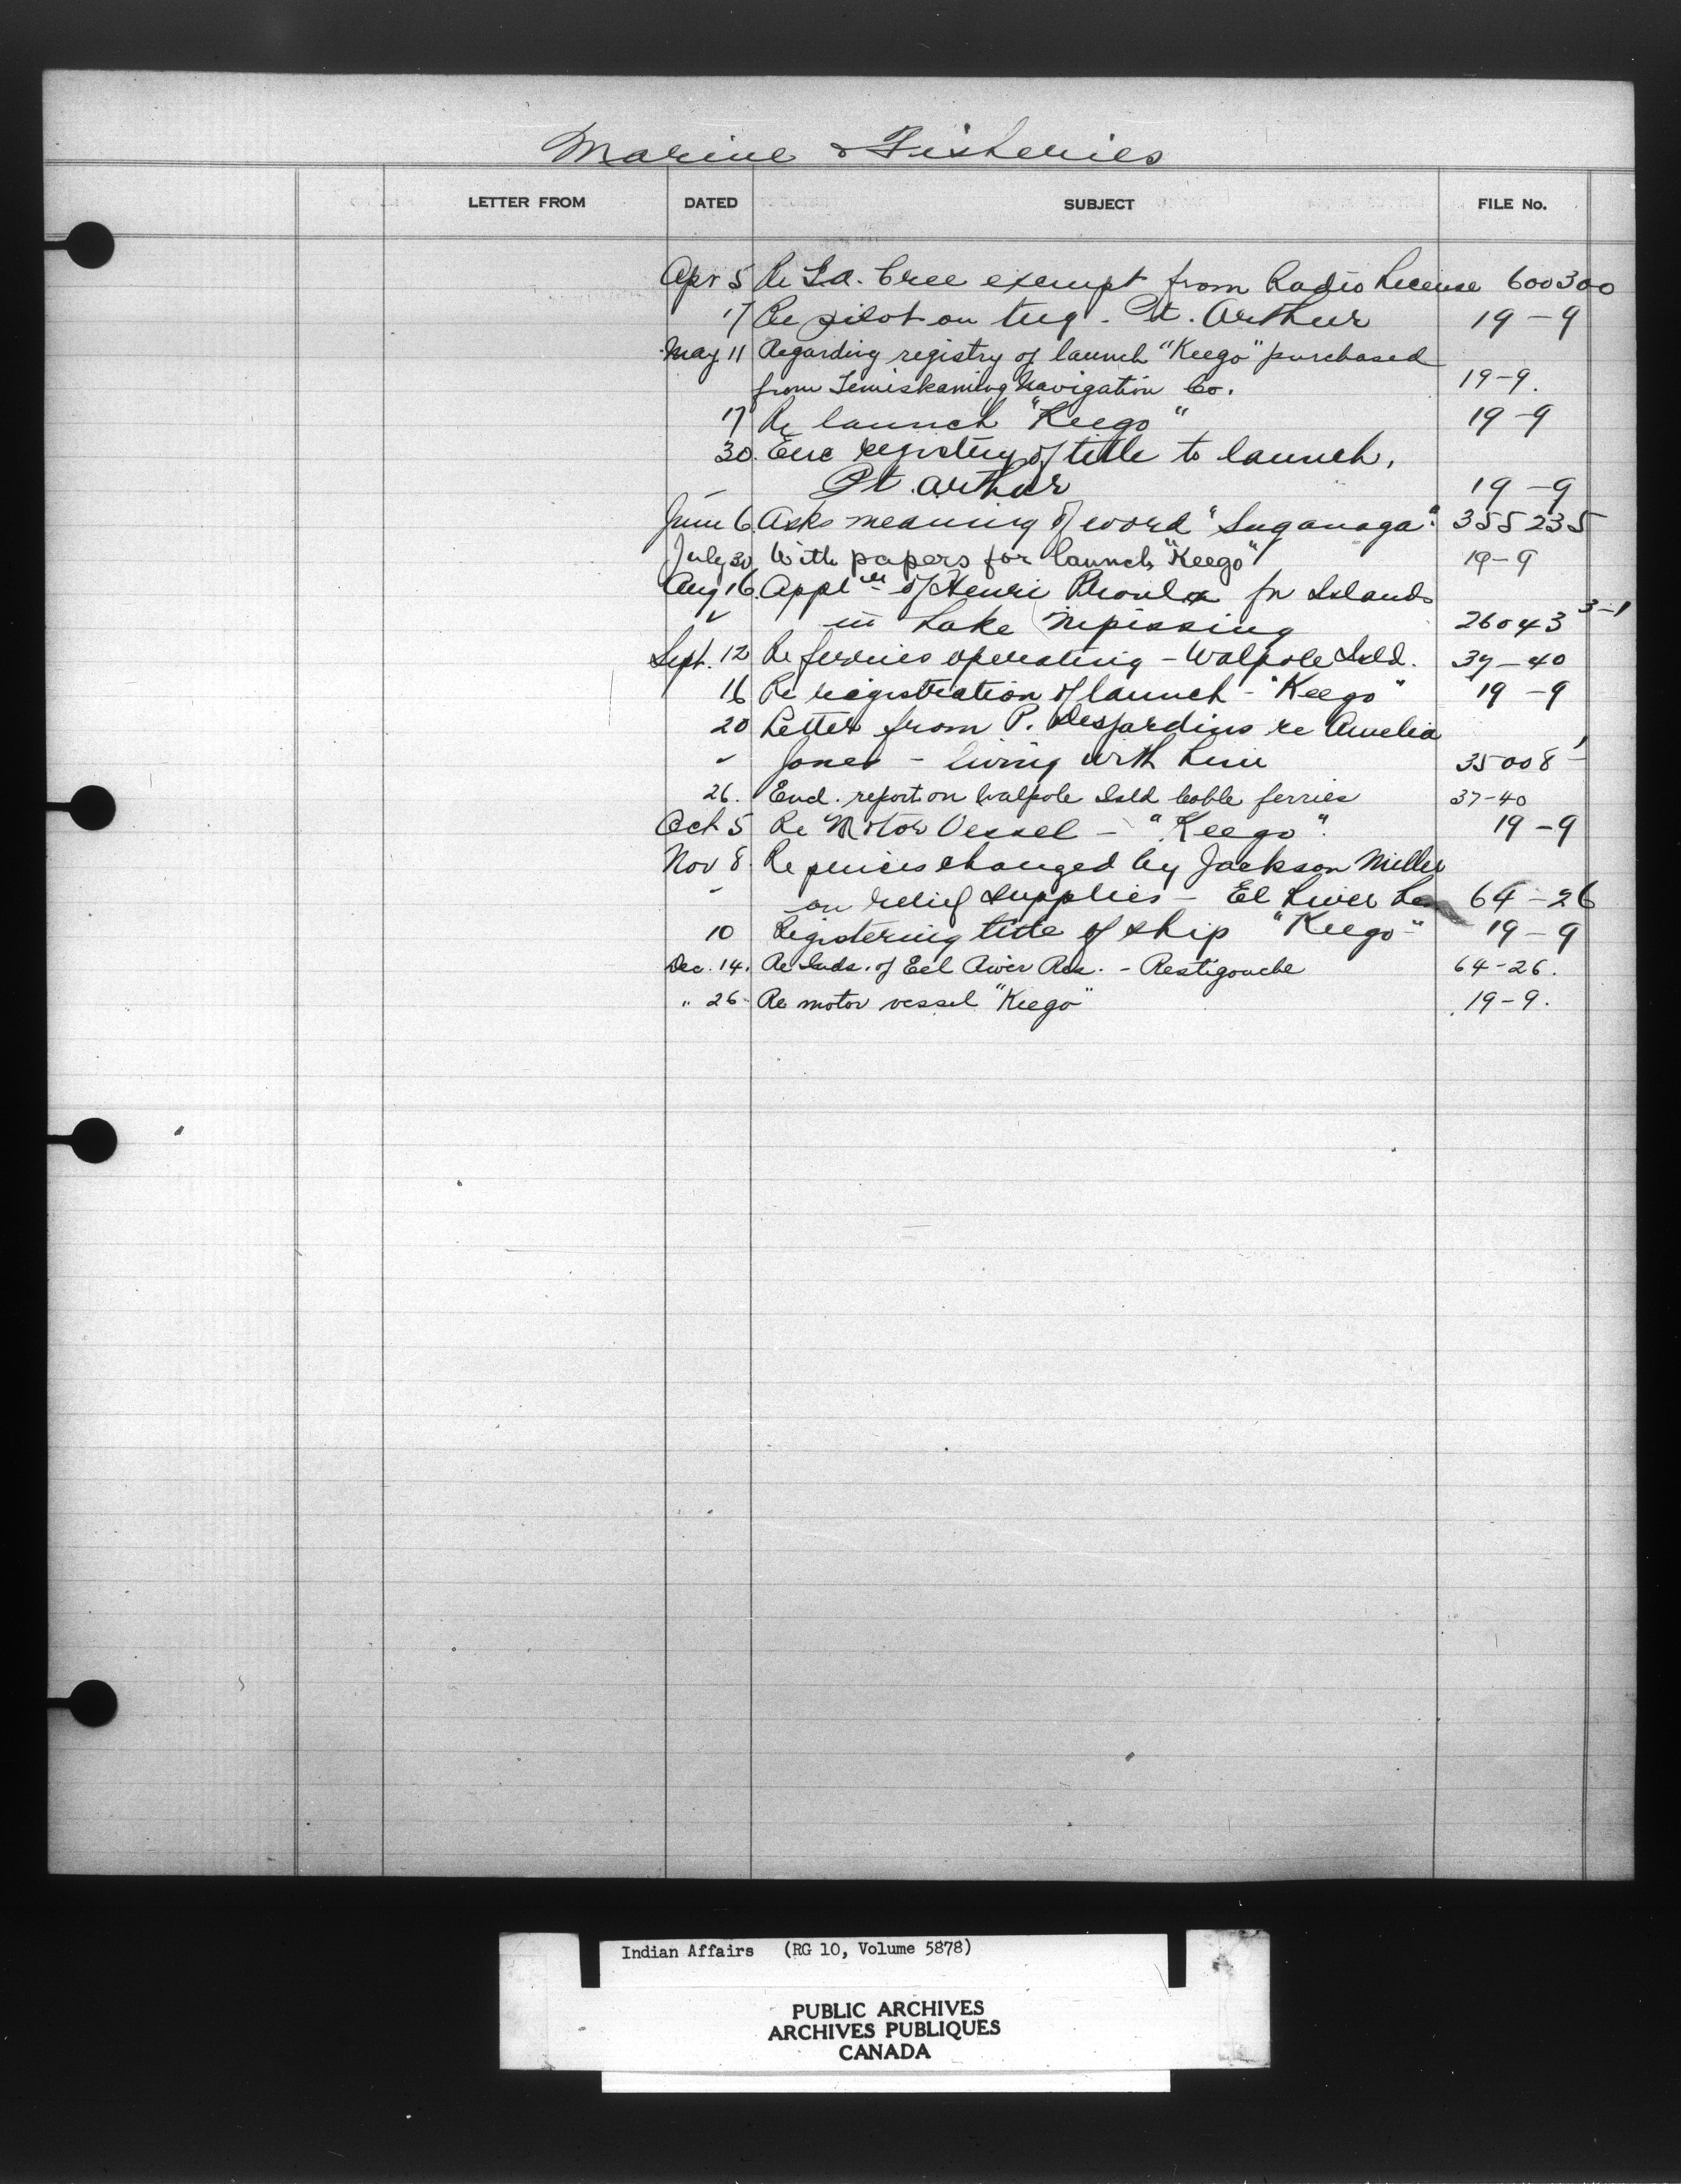 Marine & Fisheries
LETTER FROM DATED SUBJECT FILE No.
Apr 5 Re Cree exempt from Radio License 600300
17 Re pilot on tug - Pt. Arthur 19-9
May 11 Regarding registry of launch "Keego" purchased
from Temiskaming Navigation Co. 19-9.
17 Re launch "Keego" 19-9
30. Enc registry of title to launch,
Pt. Arthur 19-9
June 6 Asks meaning of word "Saganaga". 355235
July 30 With papers for launch "Keego" 19-9
Aug 16. Appl of Henri Proulx for Islands
" in Lake Nipissing 26043 3-1
Sept. 12 Re ferries operating - Walpole Isld. 37-40
16 Re registration of launch - "Keego" 19-9
20 Letter from P. Desjardins re Amelia
" Jones - living with him 35008
26. Encl. report on Walpole Isld cable ferries 37-40
Oct 5 Re Motor Vessel - "Keego". 19-9
Nov 8. Re prices changed by Jackson Miller
" on relief supplies - El River 64-26
10 Registering title of ship "Keego" 19-9
Dec. 14. Re Inds. of Eel River Res. - Restigouche 64-26.
" 26. Re motor vessel "Keego" 19-9.
Indian Affairs (RG 10, Volume 5878)
PUBLIC ARCHIVES
ARCHIVES PUBLIQUES
CANADA